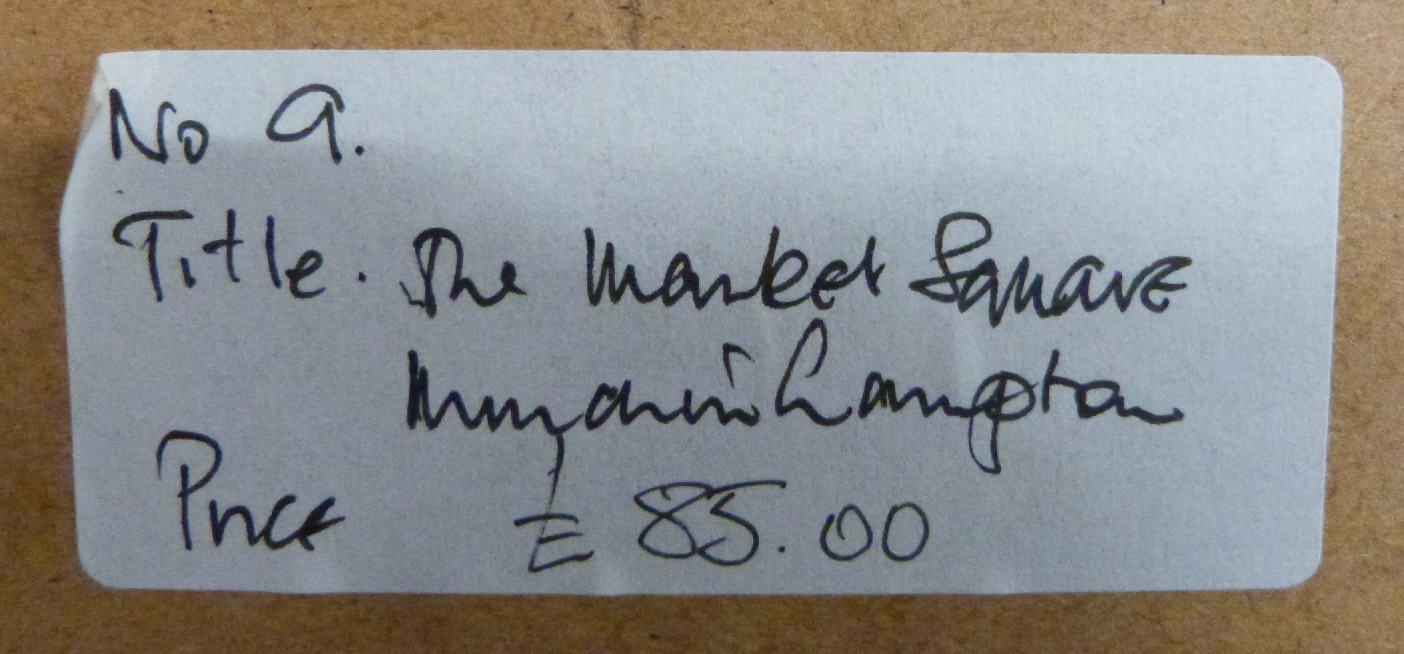 No 9.
Title. The Market Square
Minchinhampton
Price £85.00